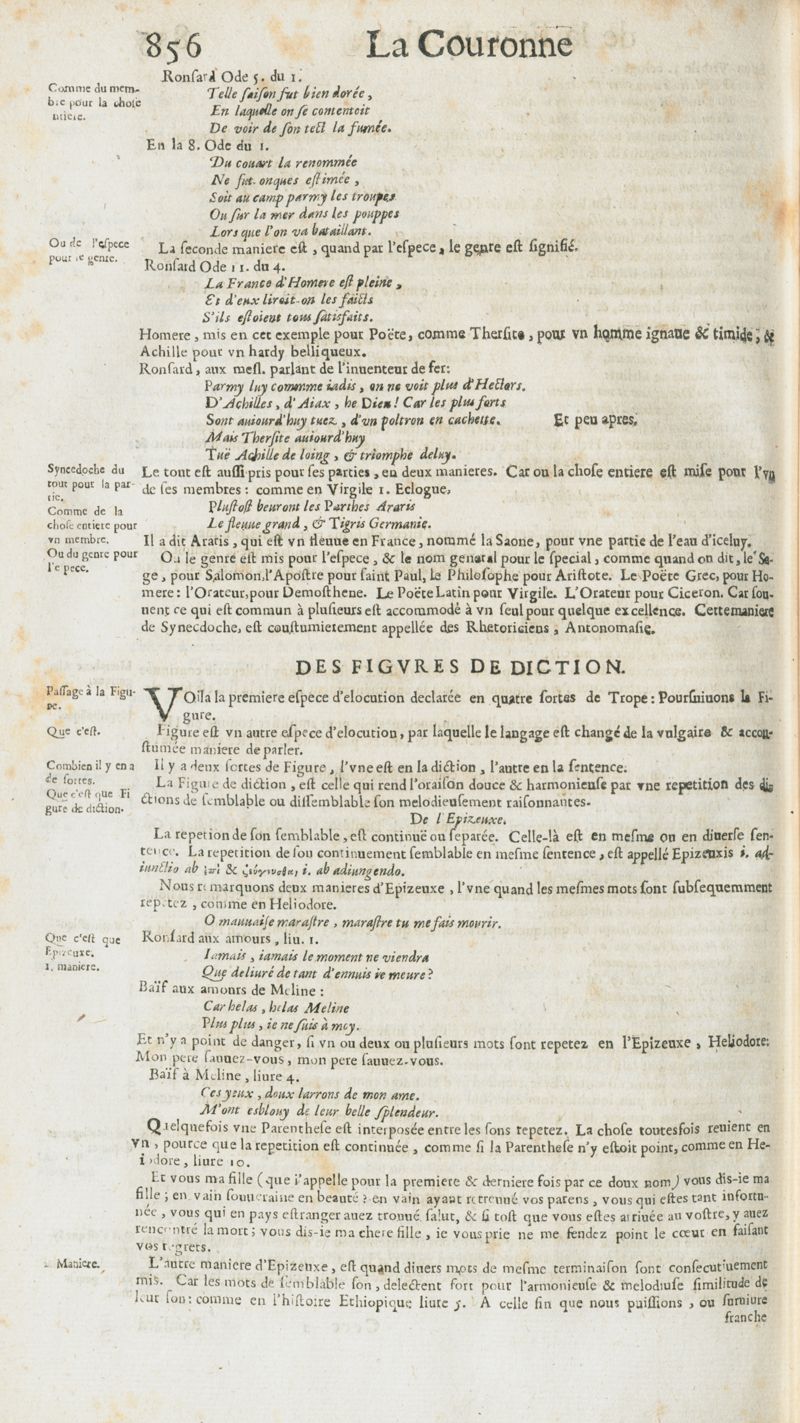 856 La Couronne
Ronſard Ode 5. du 1.
Comme du mem-
bre pour la choſe
entiere.
Telle ſaiſon fut bien dorée,
En laquelle on ſe contentoit
De voir de ſon tect la fumée.
En la 8. Ode du 1.
Du couart la renommée
Ne fut onques eſtimée,
Soit au camp parmy les troupes
Ou ſur la mer dans les pouppes
Lors que l'on va bataillant.
Ou de l'eſpece
pour le genre.
La ſeconde maniere eſt, quand par l'eſpece, le genre eſt ſignifié.
Ronſard Ode 11. du 4.
La France d'Homere eſt pleine,
Et d'eux liroit-on les faicts
S'ils eſtoient tous ſatisfaits.
Homere, mis en cet exemple pour Poëte, comme Therſite, pour vn homme ignaue & timide, &
Achille pour vn hardy belliqueux.
Ronſard, aux meſl. parlant de l'inuenteur de fer:
Parmy luy comme iadis, on ne voit plus d'Hectors.
D'Achilles, d'Aiax, he Dieu! Car les plus forts
Sont auiourd'huy tuez, d'vn poltron en cachette. Et peu apres,
Mais Therſite auiourd'huy
Tuë Achille de loing, & triomphe de luy.
Synecdoche du
tout pour la par-
tie.
Comme de la
choſe entiere pour
vn membre.
Ou du genre pour
l'eſpece.
Le tout eſt auſſi pris pour ſes parties, en deux manieres. Car ou la choſe entiere eſt miſe pour l'vn
de ſes membres: comme en Virgile 1. Eclogue,
Pluſtoſt beuront les Parthes Araris
Le fleuue grand, & Tigris Germanie.
Il a dit Araris, qui eſt vn fleuue en France, nommé la Saone, pour vne partie de l'eau d'iceluy.
Ou le genre eſt mis pour l'eſpece, & le nom general pour le ſpecial, comme quand on dit, le Sa-
ge, pour Salomon, l'Apoſtre pour ſaint Paul, le Philoſophe pour Ariſtote. Le Poëte Grec, pour Ho-
mere: l'Orateur, pour Demoſthene. Le Poëte Latin pour Virgile. L'Orateur pour Ciceron. Car ſou-
uent ce qui eſt commun à pluſieurs eſt accommodé à vn ſeul pour quelque excellence. Cette maniere
de Synecdoche, eſt couſtumierement appellée des Rhetoriciens, Antonomaſie.
DES FIGVRES DE DICTION.
Paſſage à la Figu-
re.
VOila la premiere eſpece d'elocution declarée en quatre ſortes de Trope: Pourſuiuons la Fi-
gure.
Que c'eſt.
Figure eſt vn autre eſpece d'elocution, par laquelle le langage eſt changé de la vulgaire & accou-
ſtumée maniere de parler.
Combien il y en a
de ſortes.
Que c'eſt que Fi
gure de diction.
Il y a deux ſortes de Figure, l'vne eſt en la diction, l'autre en la ſentence.
La Figure de diction, eſt celle qui rend l'oraiſon douce & harmonieuſe par vne repetition des di-
ctions de ſemblable ou diſſemblable ſon melodieuſement raiſonnantes.
De l'Epizeuxe.
La repetion de ſon ſemblable, eſt continuë ou ſeparée. Celle-là eſt en meſme ou en diuerſe ſen-
tence. La repetition de ſon continuement ſemblable en meſme ſentence, eſt appellé Epizeuxis i. ad-
iunctio ab ἐπὶ & ζεύγνυσθαι i. ab adiungendo.
Nous remarquons deux manieres d'Epizeuxe, l'vne quand les meſmes mots ſont ſubſequemment
repetez, comme en Heliodore.
O mauuaiſe maraſtre, maraſtre tu me fais mourir.
Que c'eſt que
Epizeuxe.
1. maniere.
Ronſard aux amours, liu. 1.
Iamais, iamais le moment ne viendra
Que deliuré de tant d'ennuis ie meure?
Baïf aux amours de Meline:
Car helas, helas Meline
Plus plus, ie ne ſuis à moy.
Et n'y a point de danger, ſi vn ou deux ou pluſieurs mots ſont repetez en l'Epizeuxe, Heliodore:
Mon pere ſauuez-vous, mon pere ſauuez-vous.
Baïf à Meline, liure 4.
Ces yeux, doux larrons de mon ame.
M'ont esblouy de leur belle ſplendeur.
Quelquefois vne Parentheſe eſt interpoſée entre les ſons repetez. La choſe toutesfois reuient en
vn, pource que la repetition eſt continuée, comme ſi la Parentheſe n'y eſtoit point, comme en He-
liodore, liure 10.
Et vous ma fille (que i'appelle pour la premiere & derniere fois par ce doux nom) vous dis-ie ma
fille; en vain ſouueraine en beauté? en vain ayant retrouué vos parens, vous qui eſtes tant infortu-
née, vous qui en pays eſtranger auez trouué ſalut, & ſi toſt que vous eſtes arriuée au voſtre, y auez
rencontré la mort; vous dis-ie ma chere fille, ie vous prie ne me fendez point le cœur en faiſant
vos regrets.
2. Maniere.
L'autre maniere d'Epizeuxe, eſt quand diuers mots de meſme terminaiſon ſont conſecutiuement
mis. Car les mots de ſemblable ſon, delectent fort pour l'armonieuſe & melodiuſe ſimilitude de
leur ſon: comme en l'hiſtoire Ethiopique liure 5. A celle fin que nous puiſſions, ou ſuruiure
franche